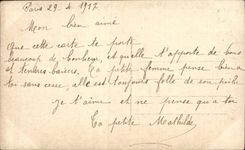 Paris 29. 4. 1917.
Mon bien aimé
Que cette carte te porte
beaucoup de bonheur, et qu'elle t'apporte de bons
et tendres baisers. Ta petite femme pense bien a
toi sans cesse, elle est toujours folle de son
je t'aime et ne pense qu'a toi
Ta petite Mathilde